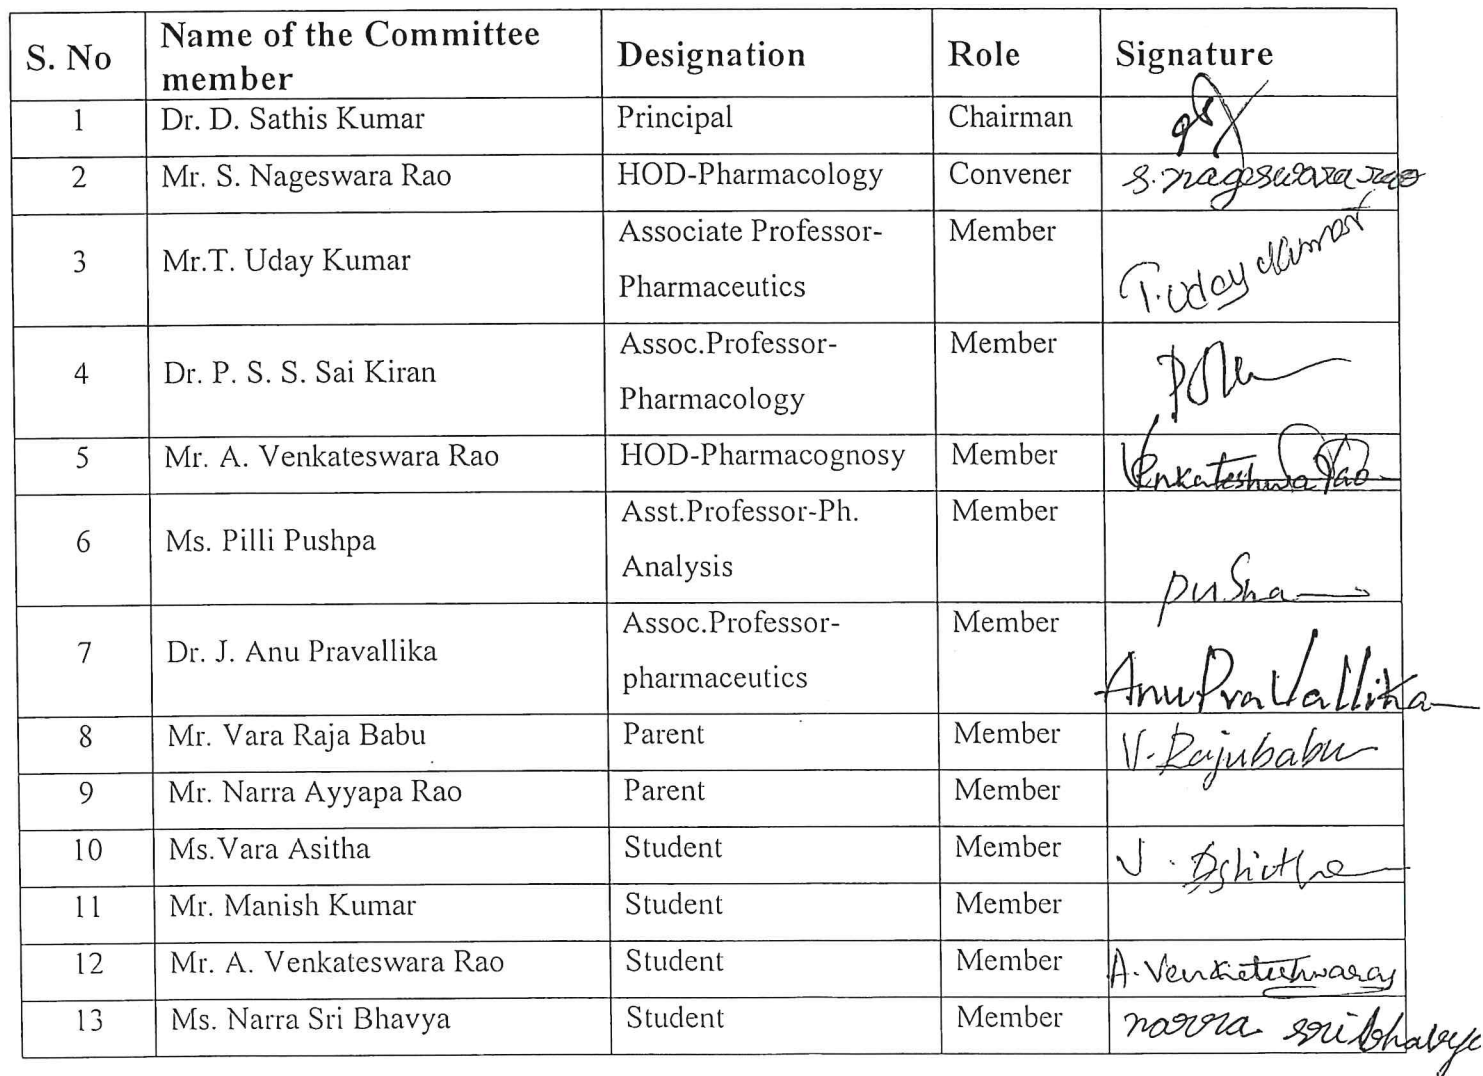 S. No Name of the Committee member Designation Role Signature
1 Dr. D. Sathis Kumar Principal Chairman
2 Mr. S. Nageswara Rao HOD-Pharmacology Convener S. nageswara rao
3 Mr.T. Uday Kumar Associate Professor- Pharmaceutics Member T. Uday Kumar
4 Dr. P. S. S. Sai Kiran Assoc.Professor- Pharmacology Member
5 Mr. A. Venkateswara Rao HOD-Pharmacognosy Member Venkateshwa Rao
6 Ms. Pilli Pushpa Asst.Professor-Ph. Analysis Member
7 Dr. J. Anu Pravallika Assoc.Professor- pharmaceutics Member Anu Pravallika
8 Mr. Vara Raja Babu Parent Member V. Rajubabu
9 Mr. Narra Ayyapa Rao Parent Member
10 Ms.Vara Asitha Student Member
11 Mr. Manish Kumar Student Member
12 Mr. A. Venkateswara Rao Student Member
13 Ms. Narra Sri Bhavya Student Member narra sri bhavya